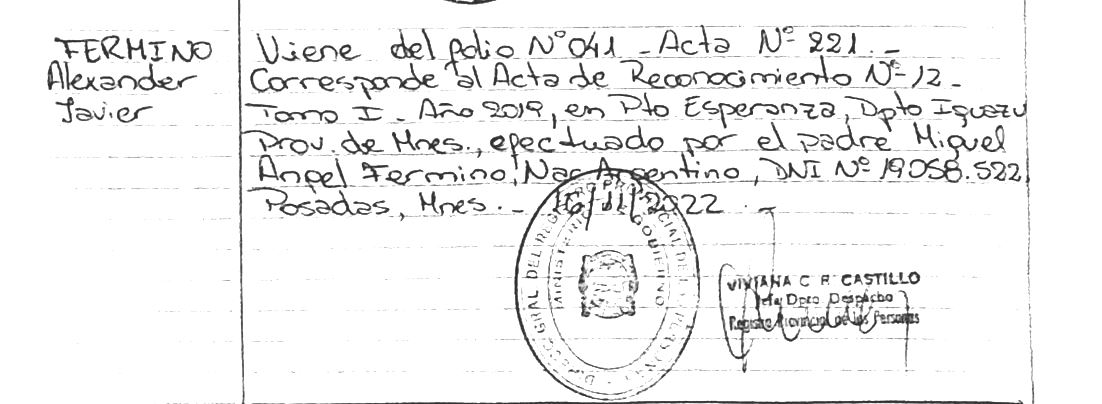 FERMINO
Alexander
Javier
Viene del folio N°041 - Acta Nº 221.-
Corresponde al Acta de Reconocimiento Nº-12-
Tomo I - Año 2019, en Pto Esperanza, Dpto Iguazu
Prov. de Mnes., efectuado por el padre Miguel
Angel Fermino, Nac Argentino, DNI Nº 19058.522
Posadas, Mnes.- 16/11/2022.-
MINISTERIO DE GOBIERNO
VIVIANA C R CASTILLO
Jefa Dpto Despacho
Registro Provincial de las Personas